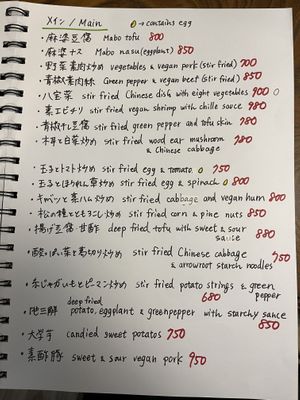 メイン / Main → contains egg
・麻婆豆腐 Mabo tofu 800
・麻婆ナス Mabo nasu (eggplant) 850
・野菜素肉炒め vegetables & vegan pork (stir fried) 900
・青椒素肉絲 Green pepper & vegan beef (stir fried) 850
・八宝菜 stir fried Chinese dish with eight vegetables 900
・素エビチリ stir fried vegan shrimp with chille sauce 980
・青椒干し豆腐 stir fried green pepper and tofu skin 780
・木耳と白菜炒め stir fried wood ear mushroom & Chinese cabbage 780
・玉子とトマト炒め stir fried egg & tomato 750
・玉子とほうれん草炒め stir fried egg & spinach 800
・キャベツと素ハム炒め stir fried cabbage and vegan ham 800
・松の種ととうもろこし炒め stir fried corn & pine nuts 850
・揚げ豆腐甘酢 deep fried tofu with sweet & sour sauce 880
・酸っぱい葉と葛切り炒め stir fried Chinese cabbage & arrowroot starch noodles 750
・糸じゃがいもとピーマン炒め stir fried potato strings & green pepper 680
・地三鮮 deep fried potato, eggplant & greenpepper with starchy sauce 850
・大学芋 candied sweet potatos 750
・素酢豚 sweet & sour vegan pork 950